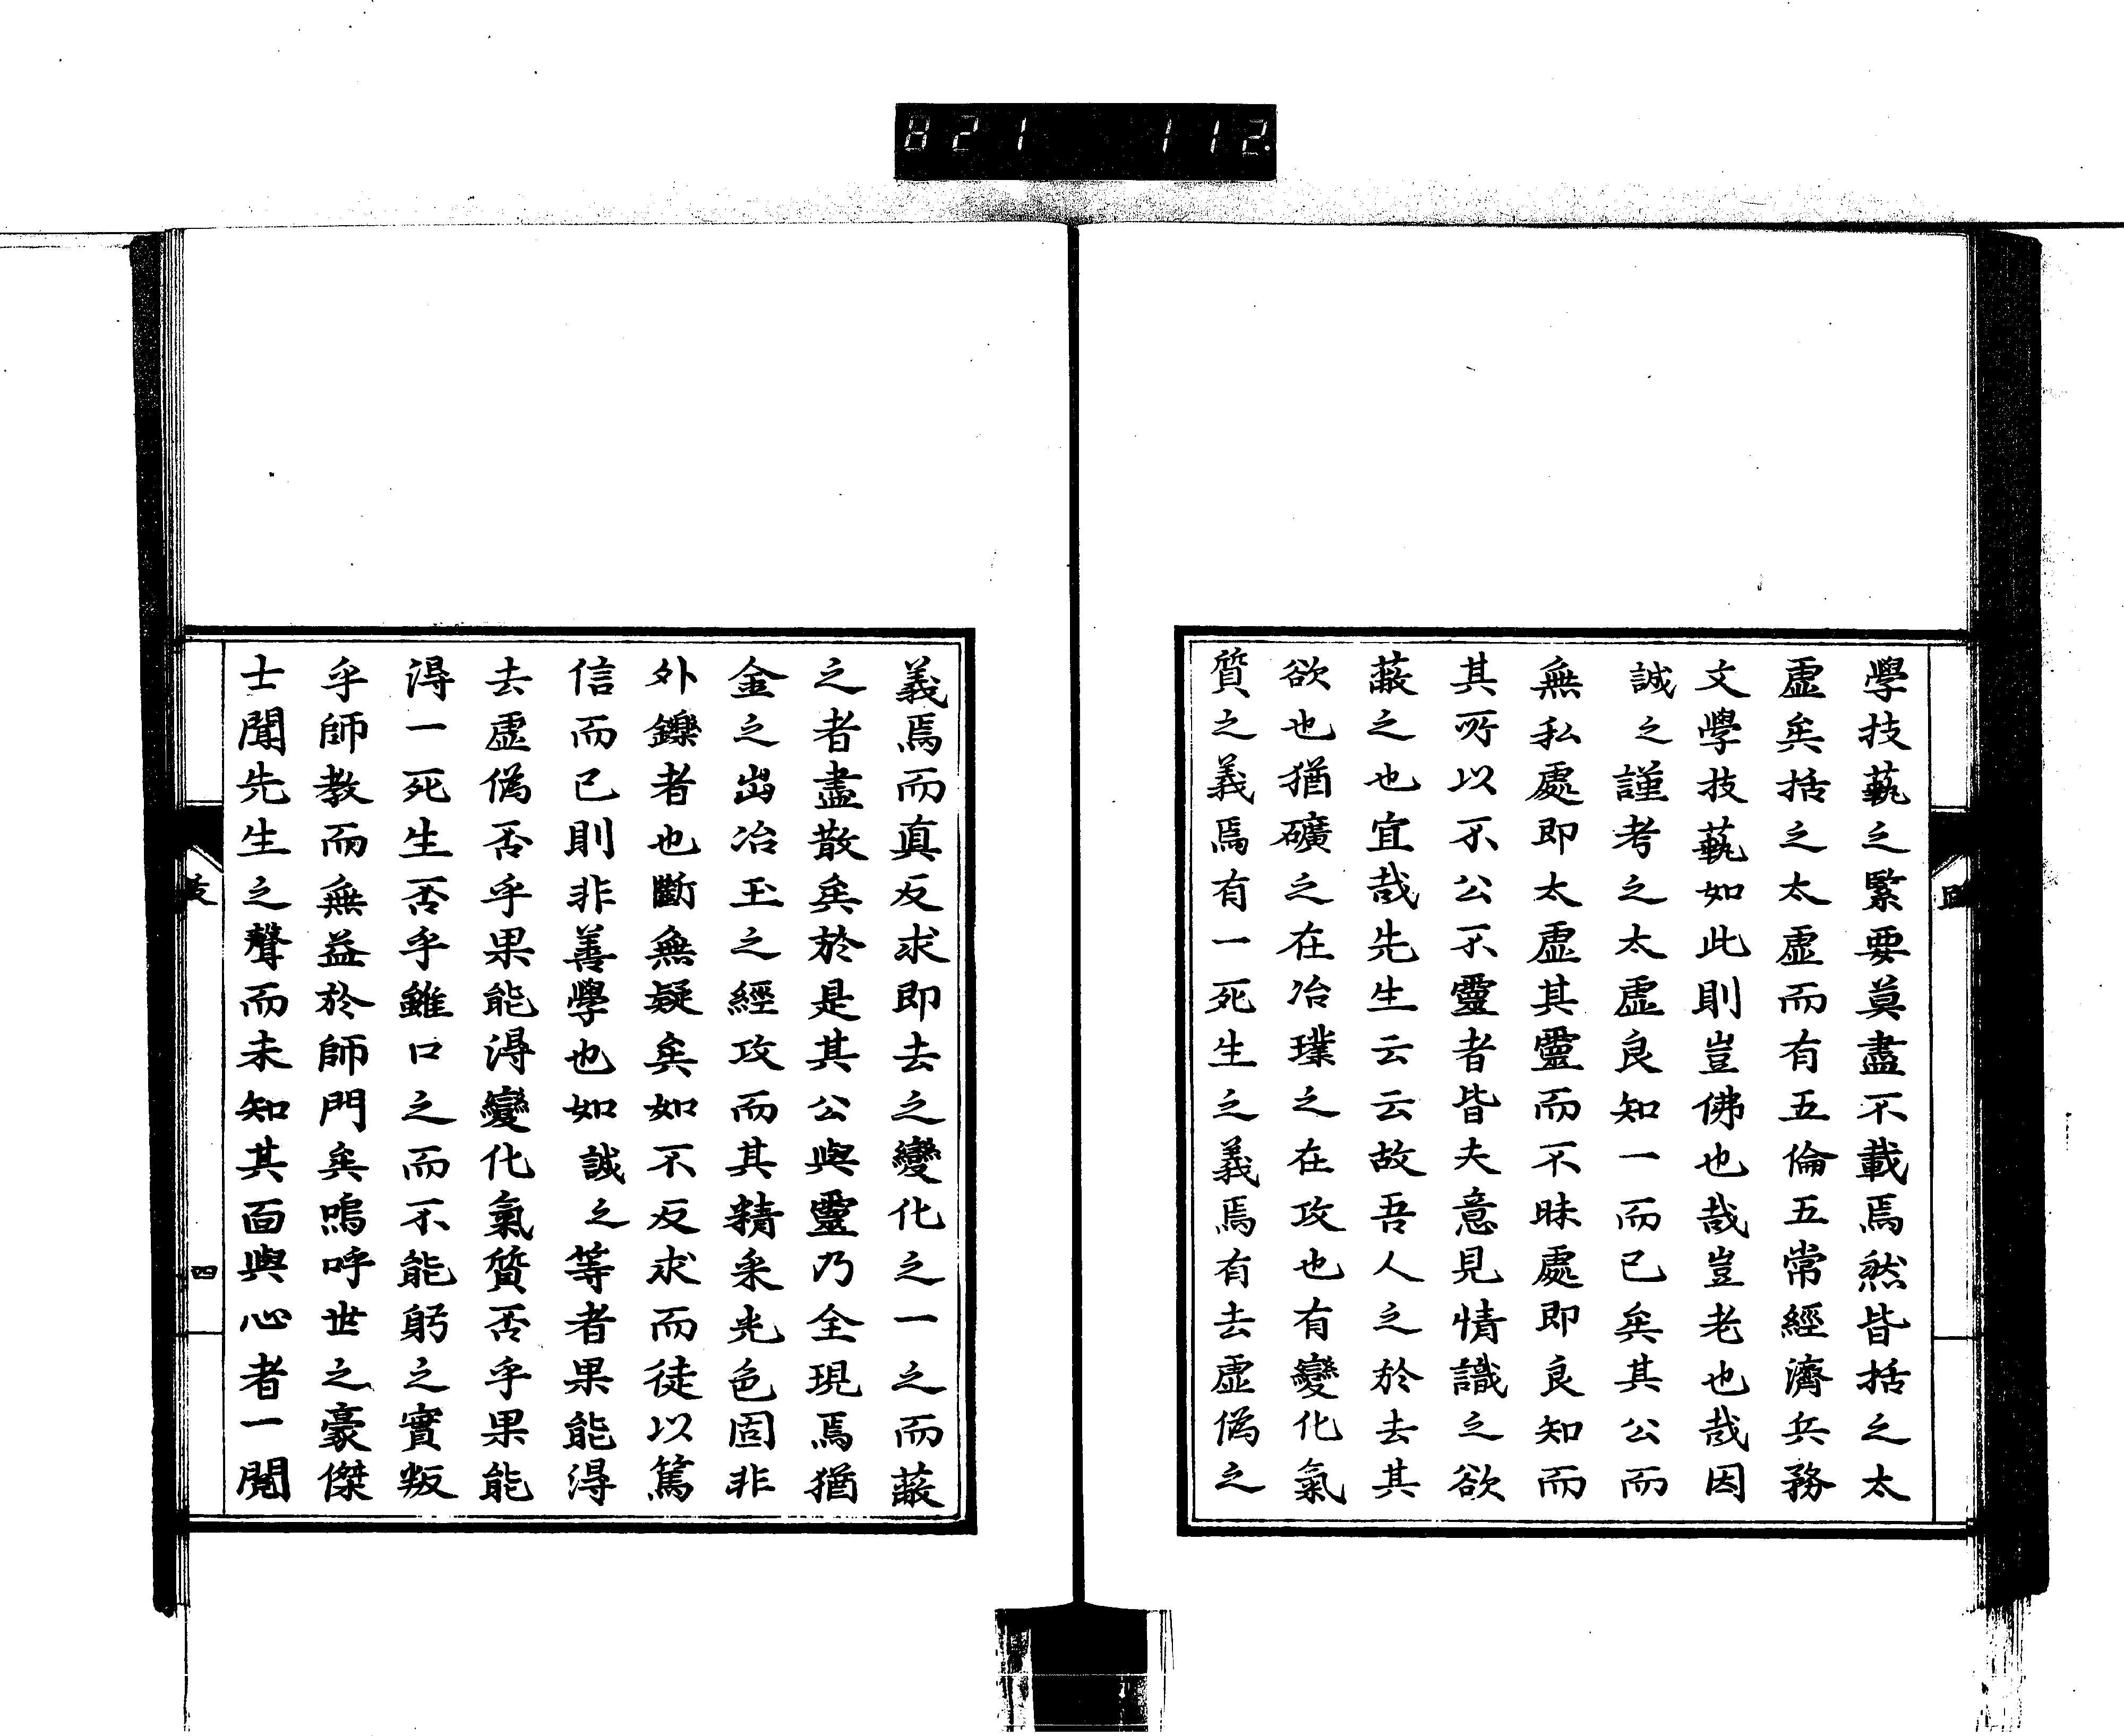 821 112.
學技藝之緊要莫盡不載焉然皆括之太
虛矣括之太虛而有五倫五常經濟兵務
文學技藝如此則豈佛也哉豈老也哉因
誠之謹考之太虛良知一而已矣其公而
無私處即太虛其靈而不昧處即良知而
其所以不公不靈者皆夫意見情識之欲
蔽之也宜哉先生云云故吾人之於去其
欲也猶礦之在冶璞之在攻也有變化氣
質之義焉有一死生之義焉有去虛偽之
義焉而真反求即去之變化之一之而蔽
之者盡散矣於是其公與靈乃全現焉猶
金之出冶玉之經攻而其精采光色固非
外鑠者也斷無疑矣如不反求而徒以篤
信而已則非善學也如誠之等者果能得
去虛偽否乎果能得變化氣質否乎果能
得一死生否乎雖口之而不能躬之實叛
乎師教而無益於師門矣嗚呼世之豪傑
士聞先生之聲而未知其面與心者一閱
四